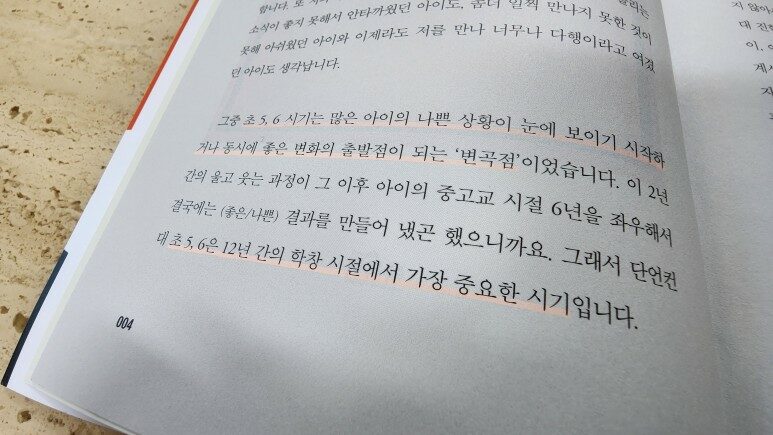 합니다. 또
소식이 좋지 못해서 안타까웠던 아이도, 좀더 일찍 만나지 못한 것이
못해 아쉬웠던 아이와 이제라도 저를 만나 너무나 다행이라고 여겼
던 아이도 생각납니다.
그중 초5, 6 시기는 많은 아이의 나쁜 상황이 눈에 보이기 시작하
거나 동시에 좋은 변화의 출발점이 되는 '변곡점'이었습니다. 이 2년
간의 울고 웃는 과정이 그 이후 아이의 중고교 시절 6년을 좌우해서
결국에는 (좋은/나쁜) 결과를 만들어 냈곤 했으니까요. 그래서 단언컨
대 초5, 6은 12년 간의 학창 시절에서 가장 중요한 시기입니다.
004
지 않아
대 진
이. 이
계시
지